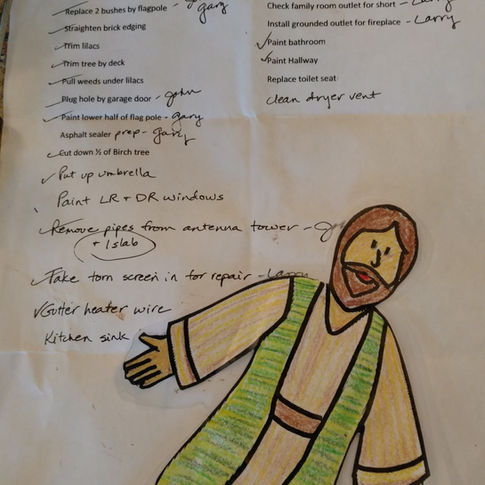 Replace 2 bushes by flagpole - gary
Straighten brick edging
Trim lilacs
Trim tree by deck
Pull weeds under lilacs
Plug hole by garage door - John
Paint lower half of flag pole - gary
Asphalt sealer prep - gary
Cut down ½ of Birch tree
Put up umbrella
Paint LR + DR windows
Remove pipes from antenna tower -
+ 1 slab
Take torn screen in for repair - Larry
Gutter heater wire
Kitchen sink
Check family room outlet for short - Larry
Install grounded outlet for fireplace - Larry
Paint bathroom
Paint Hallway
Replace toilet seat
clean dryer vent